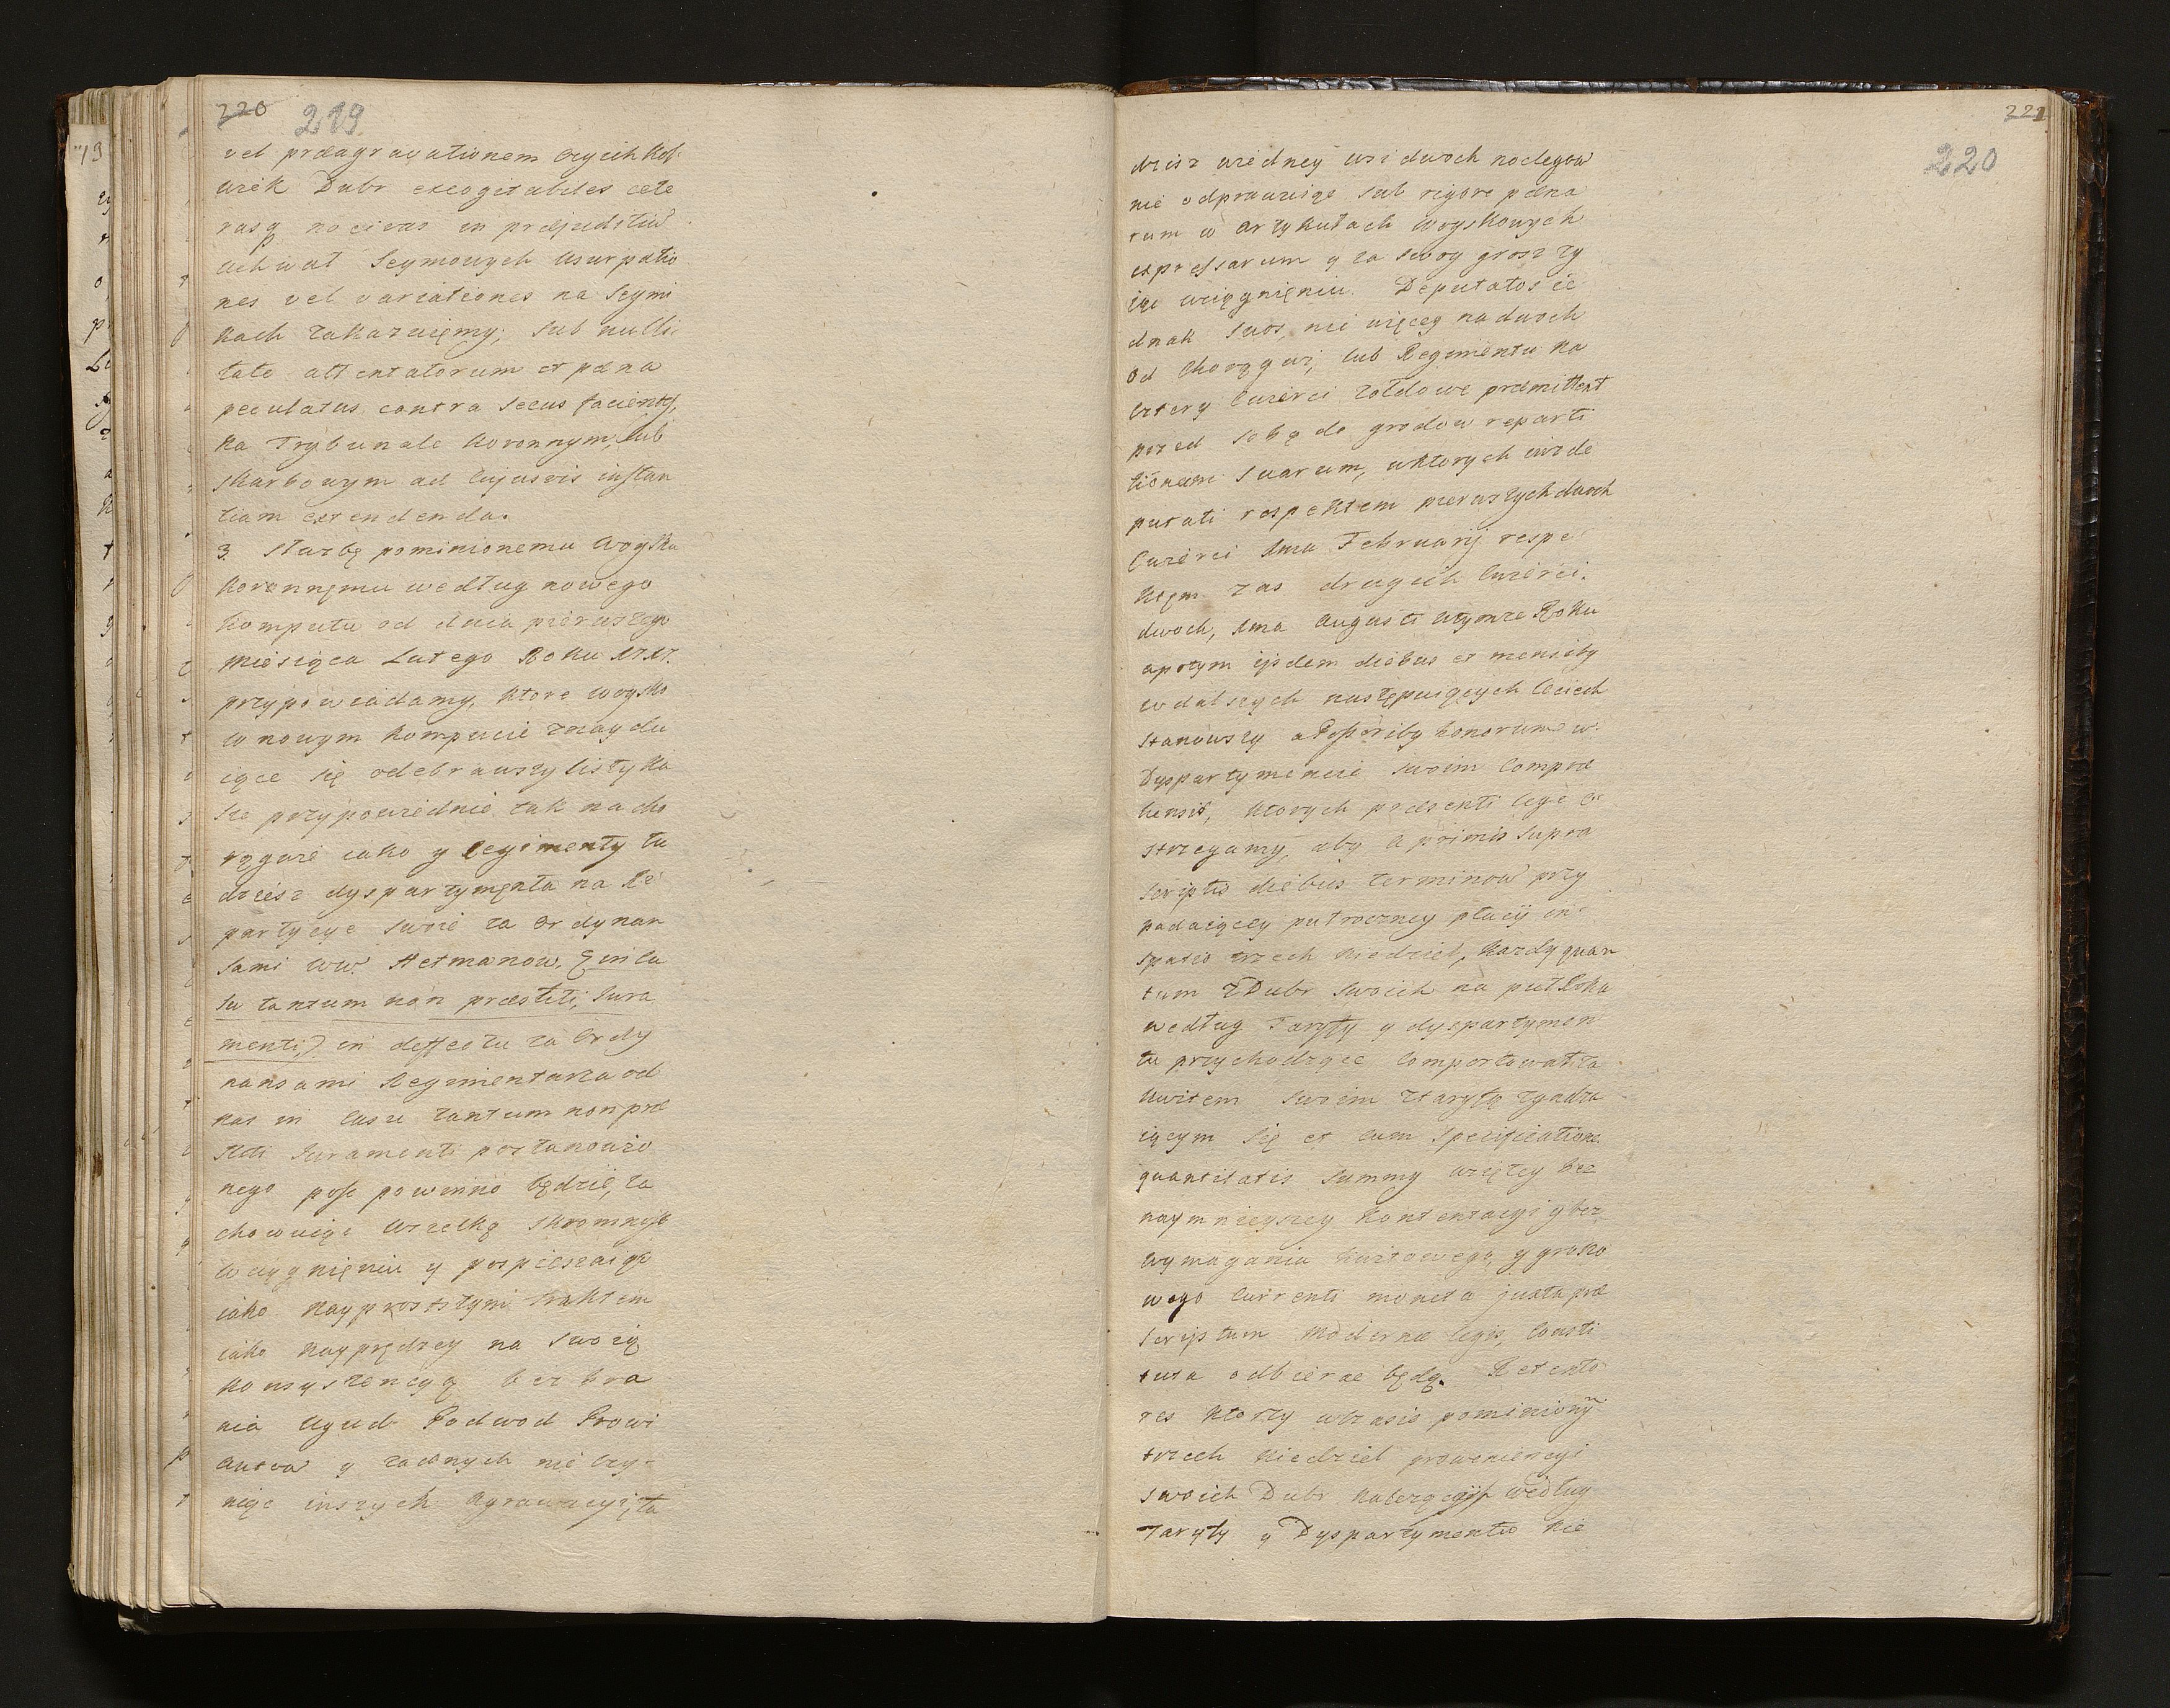 220 219
vel præagravationem czyichkol
wiek Dubr excogitabiles cete
rasq nocivas in præjudiciu
uchwał Seymowych usurpatio
nes vel variationes na Seymi
kach zakazuięmy, sub nulli
tate attentatorum et pæna
peculatus contra secus facientes,
na Trybunale koronnym, lub
skarbowym ad cujusvis instan
tiam extendenda.
3. Służbę pominionemu woysku
koronnęmu według nowego
komputu od dnia pierwszego
miesiąca Lutego Roku 1717.
przypowiadamy, ktore woysko
w nowym kompucie znaydu
iące się odebrawszy listy na
sze przypowiednie tak na cho
rągwie iako y regimenty tu
dziesz dyspartymęnta na Re
partycye swoie za Ordynan
sami WW. Hetmanow, (in ca
su tantum non præstiti, Jura
menti,) in deffectu za Ordy
nansami Regimentarza od
nas in casu tantum non præ
stiti Juramenti postanowio
nego pose powinno będzie, za
chowuiąc wszelką skromność
w ciągnięniu y pospieszaiąc
iako nayprostszymi traktem
iako nayprędzey na swoię
konsystencyą bez bra
nia Agud Podwod Prowi
antow y żadnych nie czy-
niąc inszych Agrawacyi, tu
221
220
dzisz wiedney wsi dwoch noclegow
nie odprawuiąc sub rigore pæna
rum w artykułach woyskowych
expressarum y za swoy grosz ży
iąc wciągnięniu. Deputatos ie
dnak suos, nie więcey na dwoch
od Chorągwi, lub Regimentu na
cztery cwierci żołdowe præmittent
przed sobą do grodow reparti
tionum suarum, wktorych ciż de
putati respektem pierwszych dwoch
cwierci 1ma Februarij respe
ktęm zas drugich cwierci.
dwoch, 1ma Augusti wtymże Roku
apotym ijsdem diebus et mensibg
w dalszych następuiących leciech
stanowszy a Possoribg bonorum w
Dyspartymencie swoim compræ
hensis, ktorych præsenti lege o
strzegamy, aby a primis supra
scriptis diebus terminow przy
padaiącey pułroczney płacy in
spatio trzech niedziel, każdy quan
tum z Dubr swoich na puł Roku
według Taryfy y dyspartymen
tu przychodzące comportował za
kwitem swoim z taryfą zgadza
iącym się et cum specificatione
quantitatis summy wziętey bez
naymnieyszey kontentacyi y bez
wymagania kwitowego, y groszo
wego currenti moneta juxta præ
scriptum modernæ legis, consti
tuta odbierac będą. Retento
res ktorzy wczasie pominiony
trzech niedziel prowenięncyi
swoich Dubr należącyj według
Taryfy y Dyspartymentu nie